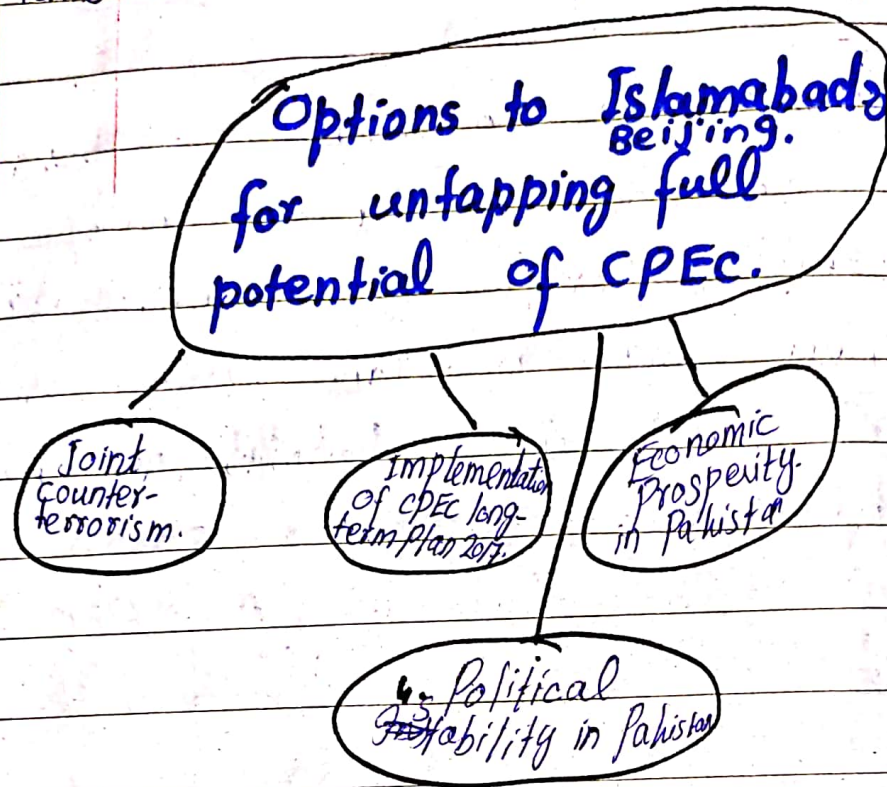 Options to Islamabad &
Beijing.
for untapping full
potential of CPEC.
Joint
counter-
terrorism.
Implementation
of CPEC long-
term Plan 2017.
Economic
Prosperity
in Pakistan
Political
Stability in Pakistan